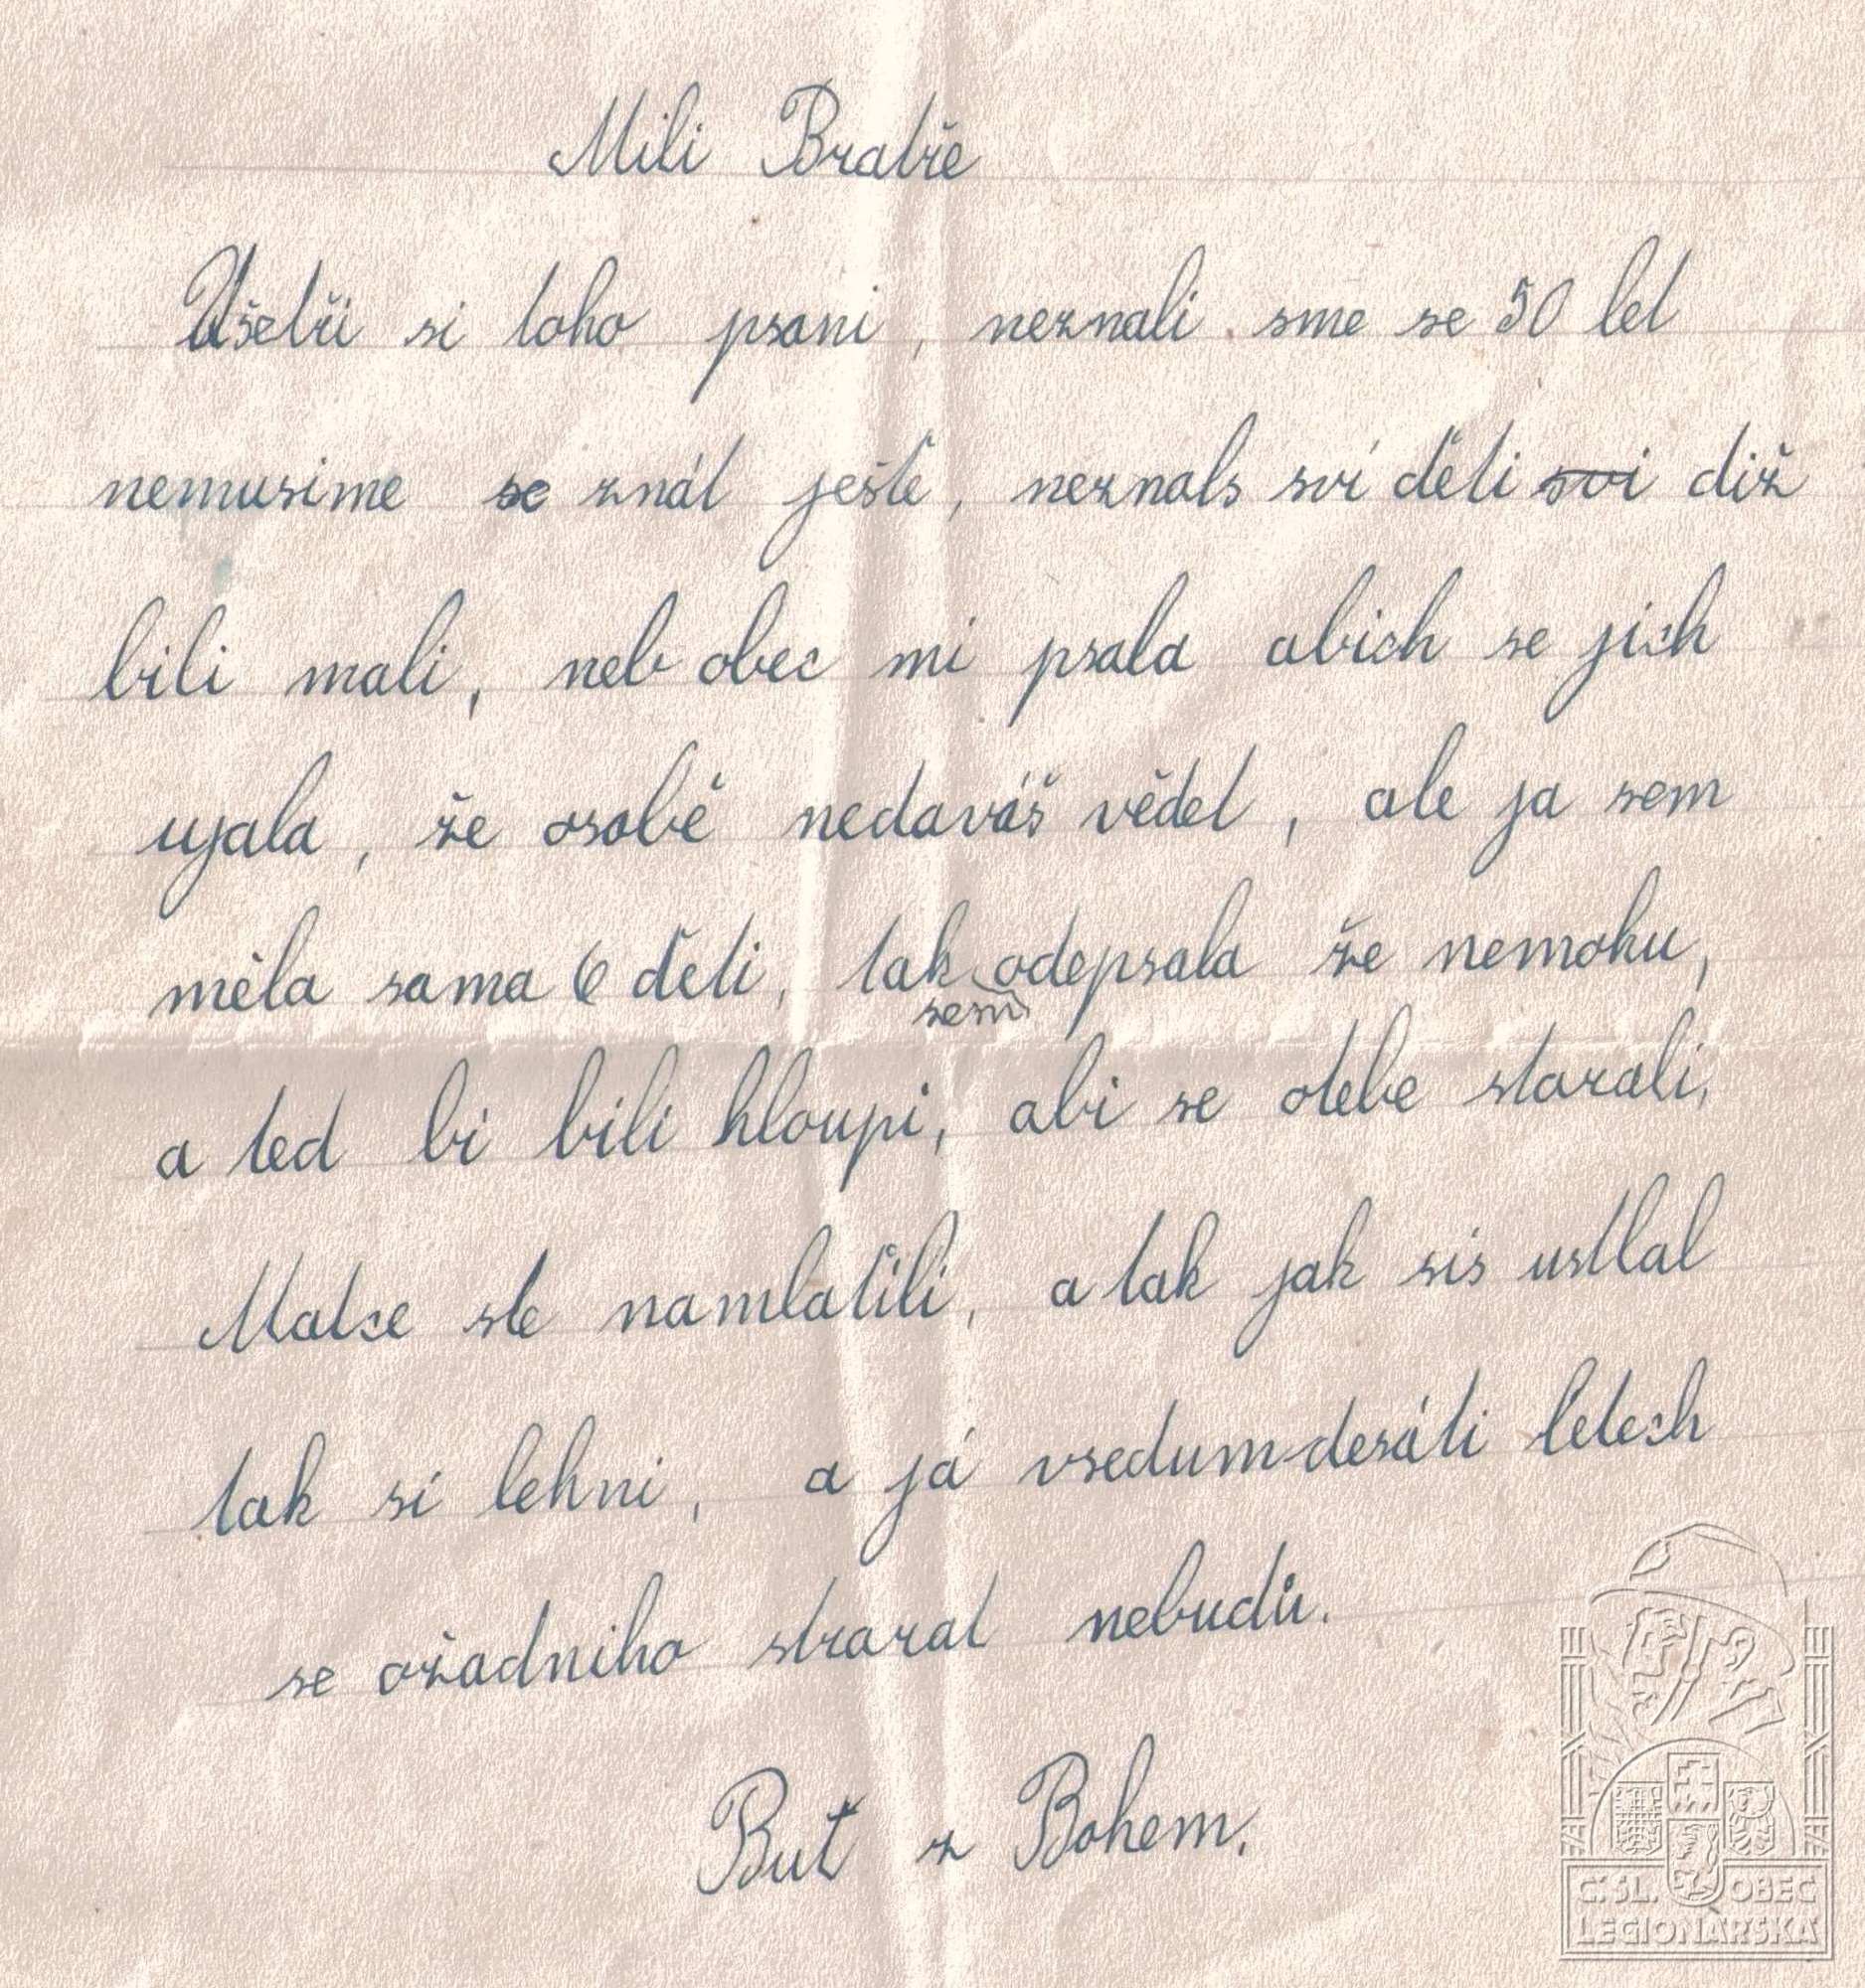 Mili Bratře
Ušetři si toho psani, neznali sme se 50 let
nemusime se znát ješťe, neznals svi ďeti svi diž
bili mali, neb obec mi psala abich se jich
ujala, že osobě nedaváš vědet, ale ja sem
měla sama 6 ďeti, tak sem odepsala že nemohu,
a ted bi bili hloupi, abi se otebe starali,
Matce ste namlaťili, a tak jak sis ustlal
tak si lehni, a já vsedumdesáti letech
se ožadniho strarat nebudů.
Buť z Bohem.
Č. SL. OBEC
LEGIONÁŘSKÁ